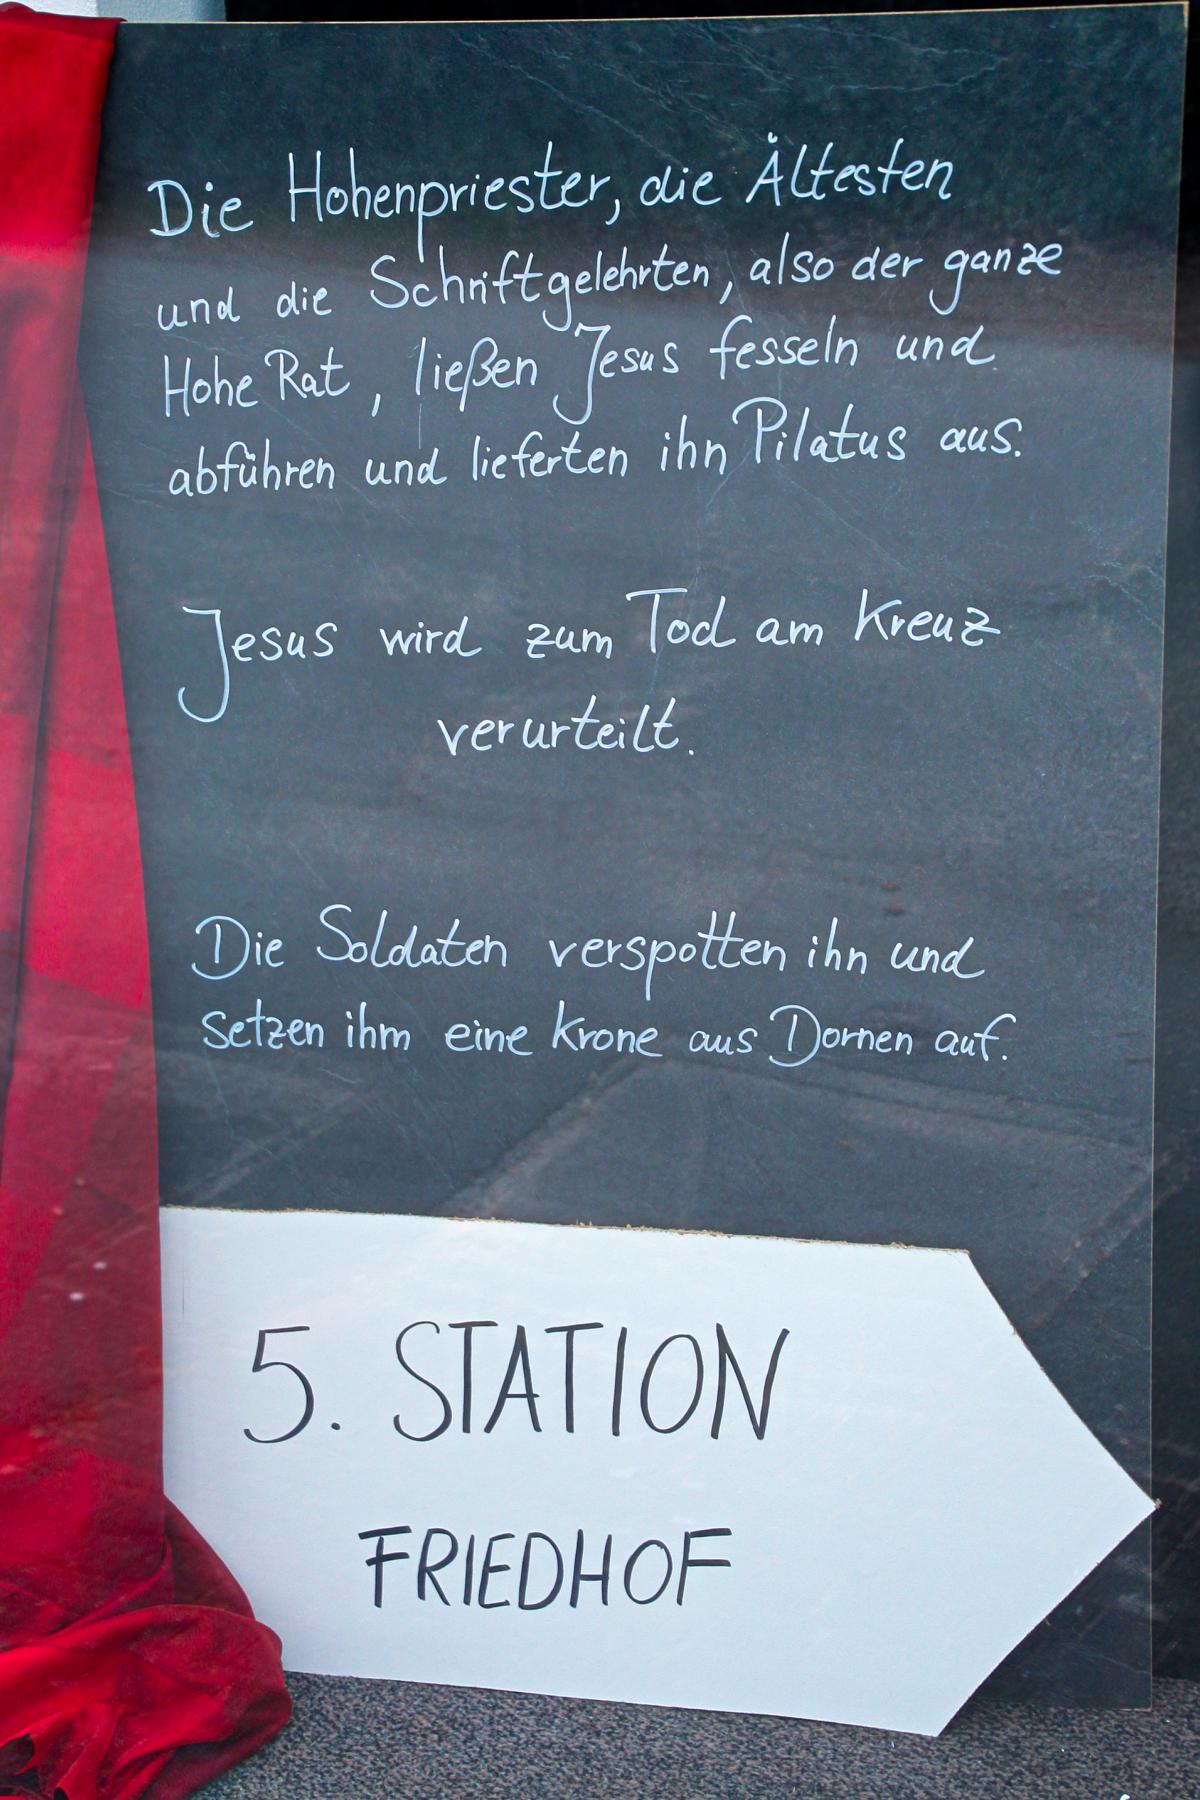 Die Hohenpriester, die Ältesten
und die Schriftgelehrten, also der ganze
Hohe Rat, ließen Jesus fesseln und
abführen und lieferten ihn Pilatus aus.
Jesus wird zum Tod am Kreuz
verurteilt.
Die Soldaten verspotten ihn und
setzen ihm eine Krone aus Dornen auf.
5. STATION
FRIEDHOF